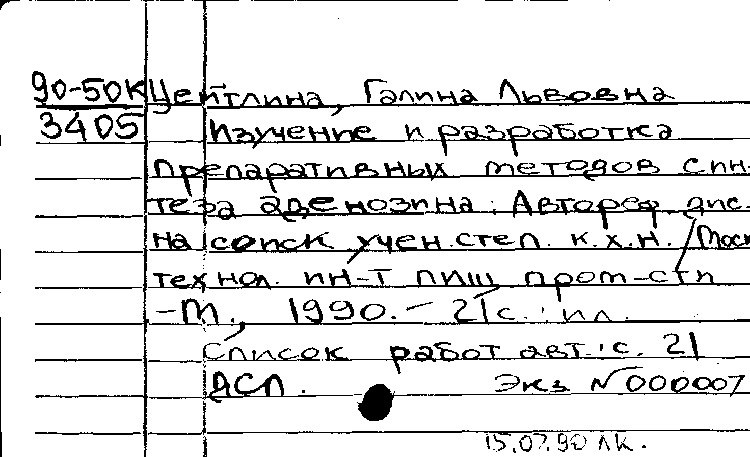 90-50К Цейтлина, Галина Львовна
3405 Изучение и разработка
препаративных методов син-
теза аденозина: Автореф. дис.
на соиск учен. степ. к.х.н. / Моск
технол. ин-т пищ. пром-сти
-М., 1990.- 21 с.: ил.
Список работ авт.: с. 21
ДСП. Экз N 000007
15.07.90 ЛК.